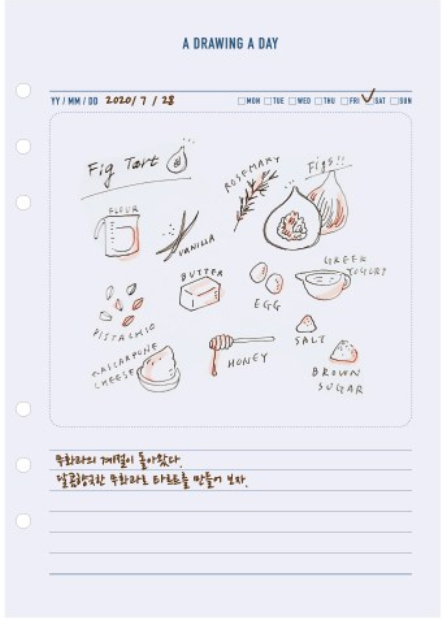 A DRAWING A DAY
YY / MM / DD 2020 / 7 / 28 MON TUE WED THU FRI SAT SUN
Fig Tart
ROSEMARY
Figs!!
FLOUR
VANILLA
BUTTER
EGG
GREEK
YOGURT
PISTACHIO
MASCARPONE
CHEESE
HONEY
SALT
BROWN
SUGAR
무화과의 계절이 돌아왔다.
달콤향긋한 무화과로 타르트를 만들어 보자.